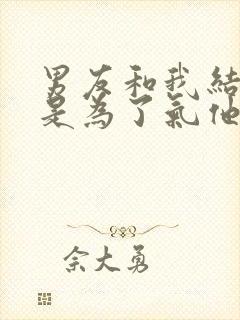 男友和我結
是為了氣他
佘大勇